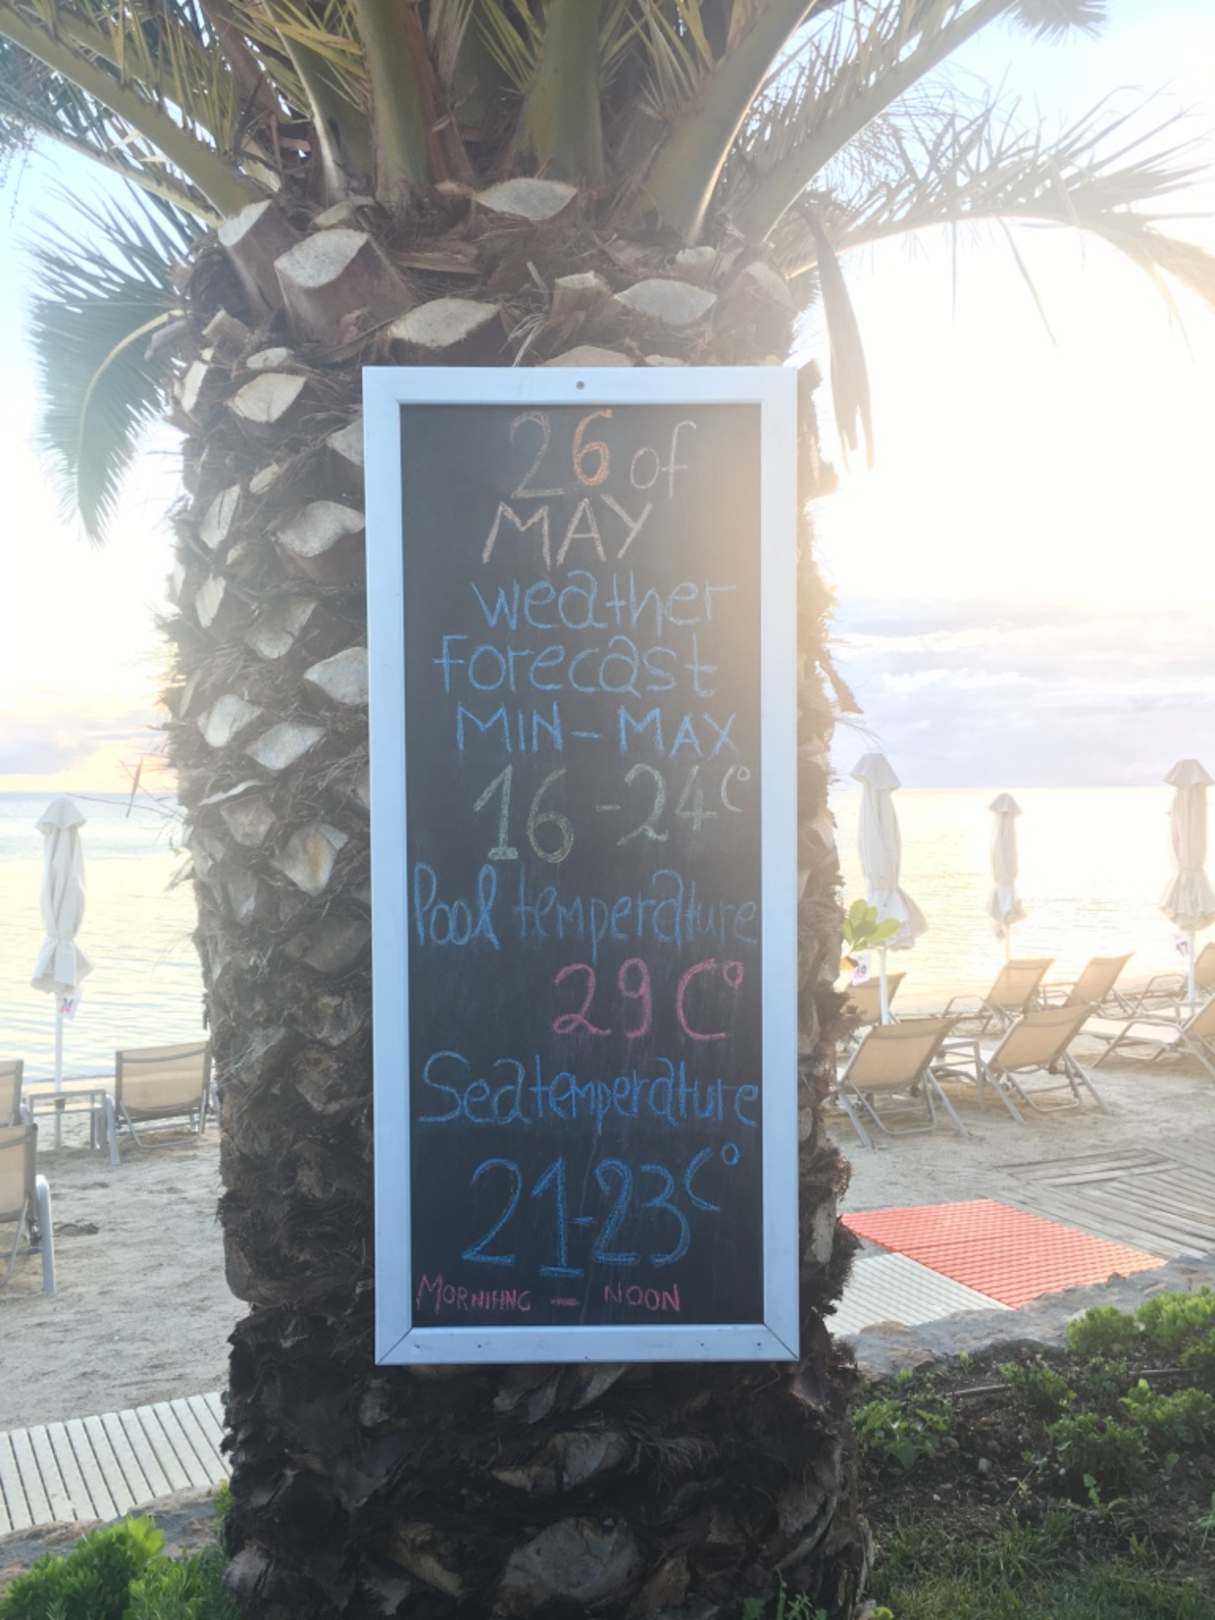 26 of
MAY
weather
forecast
MIN - MAX
16 - 24 C°
Pool temperature
29 C°
Sea temperature
21-23 C°
MORNIHNG - NOON